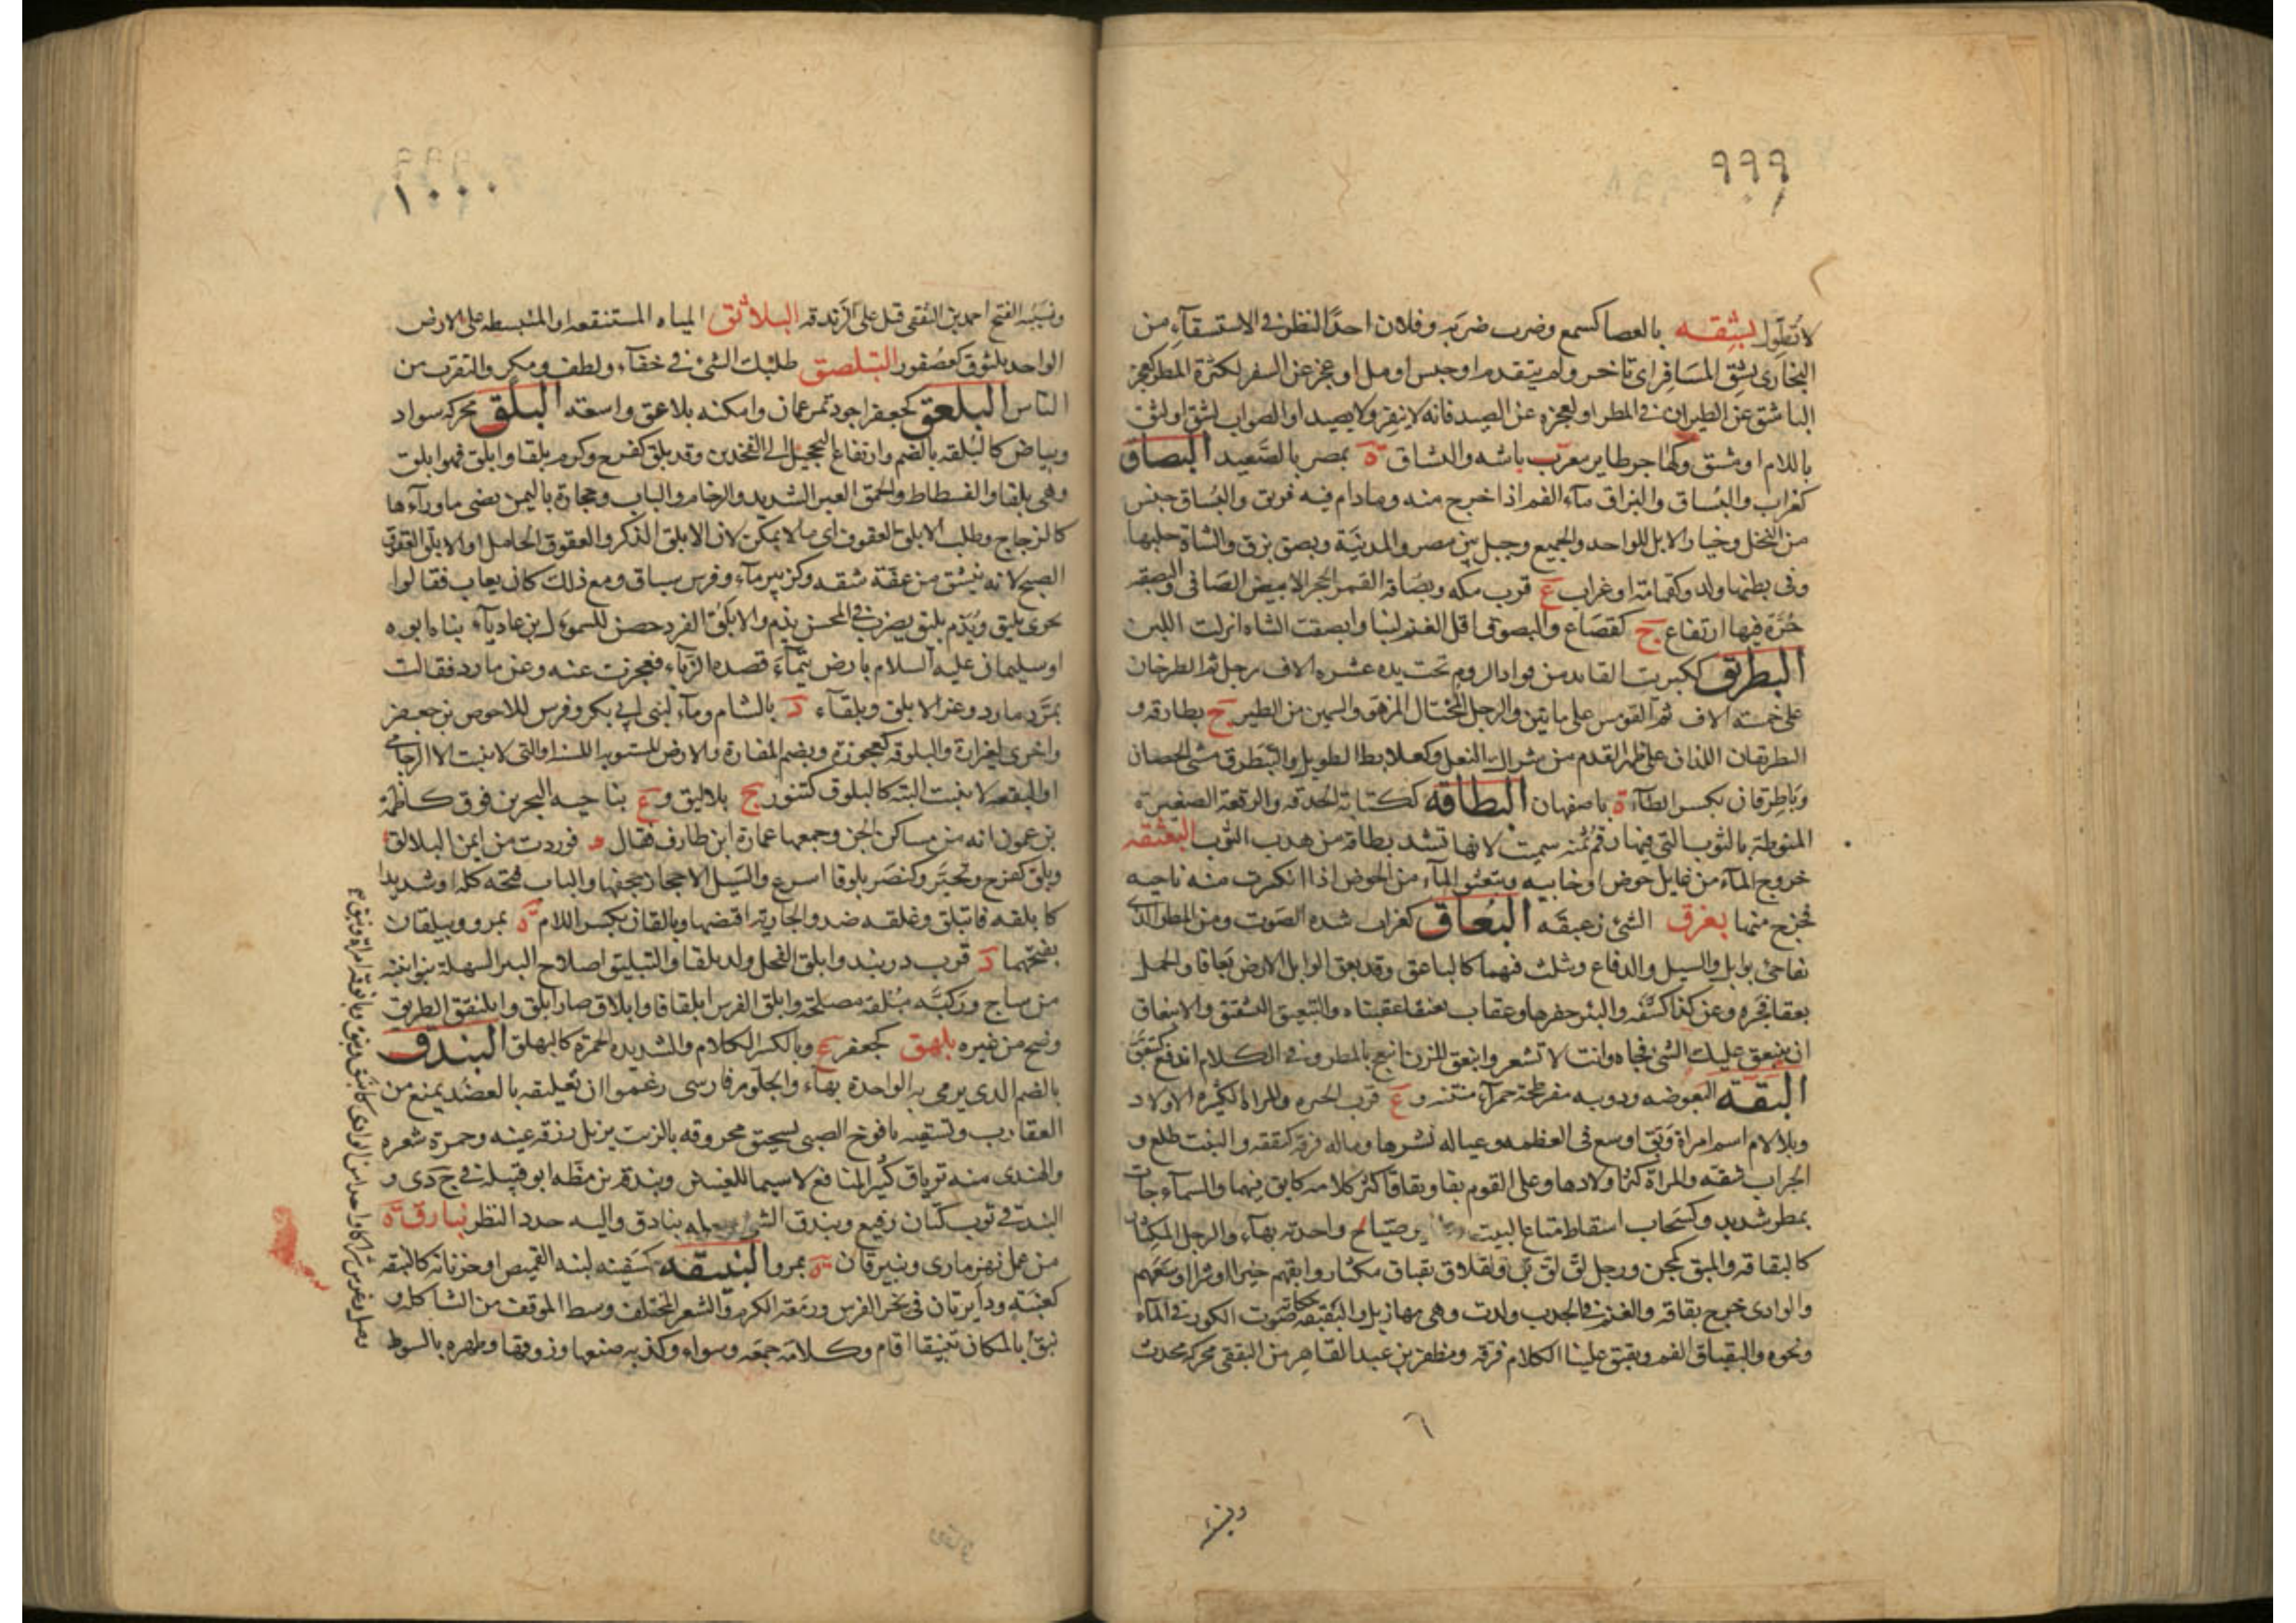 ٩٩٩
لا تُطَوَّل بشقه بالعصا كسمع وضرب ضربه وفلان احدَّ النظر في الاستسقآءِ من
البخارى بشق المسَافِر اى تاخر ولم يتقدم او حبس او مل او عجز عن السفر لكثرة المطر كعجز
الباشق عن الطيران في المطر او لعجزه عن الصيد فانه لا ينفر ولا يصيد او الصواب لشق او لثق
باللام او مشق وكهاجر طاير معرّب باشه والبشاق ة بمصر بالصَّعيد البصاق
كغراب والبُساق والبزاق مآء الفم اذا خرج منه وما دام فيه فريق والبُساق جنس
من النخل وخيار الابل للواحد والجميع وجبل بين مصر والمدينة وبصق بزق والشاة حلبها
وفى بطنها ولد وكثمامة او غراب ع قرب مكه وبصَاقة القمر الحجر الابيض الصَافى والبصقه
حُرَّة فيها ارتفاع ج كقصَاع والبصوق اقل الغنم لبنا وابصقت الشاه انزلت اللبن
البطريق ككبريت القايد من قواد الروم تحت يده عشره الاف رجل ثم الطرخان
على خمسته الاف ثم القومس على مايتين والرجل المختال المزهو والسمين من الطير ج بطارقه و
البطرقان اللذان على ظهر القدم من شراك النعل وكعلابط الطويل والتبطرق مشى الحصان
وباطرقان بكسر الطآء ة باصفهان البطاقه ككتابة الحدقه والرقعة الصغيرة
المنوطة بالثوب التى فيها رقم ثمنه سميت لانها تشد بطاقة من هدب الثوب البعثقه
خروج المآء من غايل حوض او خابيه وتبعثق المآء من الحوض اذا انكسرت منه ناحيه
فخرج منها بعزق الشئ زعبقَه البُعاق كغراب شده الصَوت ومن المطر الذى
يفاجى بوابل والسيل والدفاع ويثلث فيهما كالباعق وقد بعق الوابل الارض بَعاقا والجمل
بعقا نحره وعن كذا كشفه والبئر حفرها وعقاب بعنقاة عقبناه والتبعيق التشقيق والانبعاق
ان ينبعق عليك الشئ فجاه وانت لا تشعر وابتعق المزن انبعج بالمطر وفى الكلام اندفع كتبعَّق
البقّه البعوضه ودويبه مفرطحة حمرآء منتنه وع قرب الحيره والمراة الكثيره الاولاد
وبلا لام اسم امراة وبَقَّ اوسع فى العطيه وعياله نشرها وماله فرقه كبققه والنبت طلع و
الجراب شقه والمراة كثر اولادها وعلى القوم بقا وبقاقا كثر كلامه كابق فيهما والسمآء جات
بمطر شديد وكسَحاب اسقاط متاع البيت صَيّاح واحدته بهآء والرجل المكثار
كالبقاقه والمبق كمجن ورجل لق بق ولقلاق بقباق مكثار وابقهم خيرا او شرا اوسَعَهم
والوادى خرج بقاقه والغنم فى الجدب ولدت وهى مهازيل والبقبقه حكاية صَوت الكوز فى المآء
ونحوه والبقباق الفم وبقبق علينا الكلام فرقه ومظفر بن عبد القاهر من البققى محركه محدث
١٠٠٠
ونسَيبه الفتح احمد بن البققى قتل على الزندقه البلاثق المياه المستنقعه او المنبسطه على الارض
الواحد بلثوق كعصفور التبلصق طلبك الشئ في خفآء ولطف ومكر والتقرب من
النّاس البلعق كجعفر اجود تمر عمان وامكنه بلاعق واسعته البلق محركه سواد
وبياض كالبلقه بالضم وارتفاع التحجيل الى الفخذين وقد بلق كفرح وكرم بلقا وابلق فهو ابلق
وهى بلقا والفسطاط والحمق الغير الشديد والرخام والباب وحجارة باليمن يضى ما ورآءها
كالزجاج وطلب الابلق العقوق اى ما لا يمكن لان الابلق الذكر والعقوق الحامل او الابلق العقوق
الصبح لانه ينشق من عقّه شقه وكزبير مآء وفرس سباق ومع ذلك كان يعاب فقالوا
يجرى بليق ويُذم بليق يضرب في المحسن يذم والابلَق الفرد حصن للسموءل بن عاديآء بناه ابوه
او سليمان عليه السلام بارض تيمآء قصده الزبآء فعجزت عنه وعن مارد فقالت
تمرّد مارد وعز الابلق وبلقآء د بالشام ومآء لبنى ابى بكر وفرس للاحوص بن جعفر
واخرى لغزارة والبلوقه كعجوزة ويضم المفازة والارض المستويه اللينة او التى لا تنبت الا الرخامى
او البقعه لا تنبت البته كالبلوق كتنور ج بلاليق وع بناحيه البحرين فوق كاظمة
يزعمون انه من مساكن الجن وجمعها عمارة ابن طارف فقال فوردت من ايمن البلالق
وبلق كفرح وتحيّر وكنصَر بلوقا اسرع والسَيل الاحجار جحفها والباب فتحه كله او شديدا
كابلقه فانبلق وغلقه ضد والجارية اقتضها وبالقان بكسر اللام ة بمرو وبيلقان
بفتحهما د قرب دربند وابلق الفحل ولد بلقا والتبليق اصلاح البئر السهلة بتوابيت
من ساج وركيَّه مبُلقة مصلحة وابلق الفرس ابلقاقا وابلاق صار ابلق وابلنقق الطريق
وضح من غيره بلهق كجعفر ع وبالكسر الكلام والشديده الحمرة كالبهلق البندق
بالضم الذى يرمى به الواحدة بهآء والجلّوز فارسى زعموا ان تعليقه بالعضد يمنع من
العقارب وتسقيه يافوخ الصبى بسحيق محروقه بالزيت يزيل زرقه عينه وحمرة شعره
والهندى منه ترياق كثير المنافع لا سيما للعينين وبندقه بن مظّه ابو قبيله فى ج د ى و
البندقي ثوب كتان رفيع وبندق الشئ جعله بنادق واليه حدد النظر بُنارق ة
من عمل نهر مارى وبنيرقان ة بمرو البنيقه كسَفينه لبنه القميص او جربانه كالبنقه
كعنبَةٍ ودايرتان فى نحر الفرس وزمَعة الكرمه والشعر المختلف وسط الموقف من الشاكله و
بَنقَ بالمكان تبنيقا اقام وكلامَه جمعَه وسواه وكذبه صنعها وزوقها وظهره بالسوط
وصل وغرس شراكا واحدا من الوادى كابنق وبنق